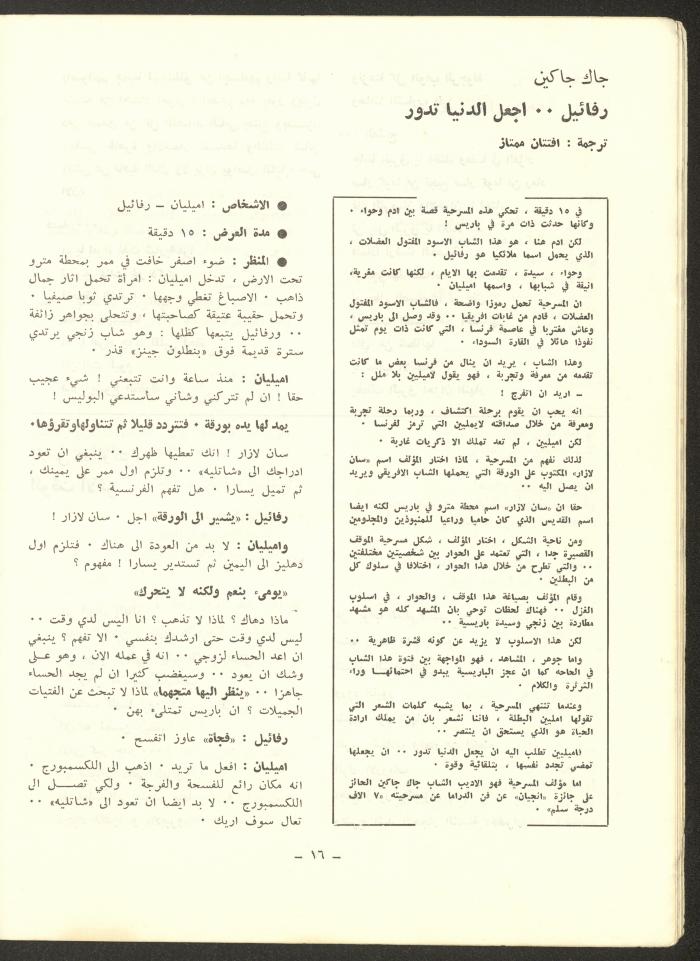 جاك جاكين
رفائيل ٠٠ اجعل الدنيا تدور
ترجمة : افتتان ممتاز
في ١٥ دقيقة ، تحكي هذه المسرحية قصة بين ادم وحواء ٠
وكأنها حدثت ذات مرة في باريس !
لكن ادم هنا ، هو هذا الشاب الاسود المفتول العضلات ،
الذي يحمل اسما ملائكيا هو رفائيل ٠
وحواء ، سيدة ، تقدمت بها الايام ، لكنها كانت مغرية،
انيقة في شبابها ، واسمها اميليان ٠
ان المسرحية تحمل رموزا واضحة ، فالشاب الاسود المفتول
العضلات ، قادم من غابات افريقيا ٠٠ وقد وصل الى باريس ،
وعاش مغتربا في عاصمة فرنسا ، التي كانت ذات يوم تمثل
نفوذا هائلا في القارة السوداء ٠
وهذا الشاب ، يريد ان ينال من فرنسا بعض ما كانت
تقدمه من معرفة وتجربة ، فهو يقول لاميليين بلا ملل :
ـ اريد ان اتفرج !
انه يحب ان يقوم برحلة اكتشاف ، وربما رحلة تجربة
ومعرفة من خلال صداقته لايمليين التي ترمز لفرنسا ٠
لكن اميليين ، لم تعد تملك الا ذكريات غاربة ٠
لذلك نفهم من المسرحية ، لماذا اختار المؤلف اسم «سان
لازار» المكتوب على الورقة التي يحملها الشاب الافريقي ويريد
ان يصل اليه ٠٠
حقا ان «سان لازار» اسم محطة مترو في باريس لكنه ايضا
اسم القديس الذي كان حاميا وراعيا للمنبوذين والمجذومين
ومن ناحية الشكل ، اختار المؤلف ، شكل مسرحية الموقف
القصيرة جدا ، التي تعتمد على الحوار بين شخصيتين مختلفتين
٠٠ والتي تطرح من خلال هذا الحوار ، اختلافا في سلوك كل
من البطلين ٠
وقام المؤلف بصياغة هذا الموقف ، والحوار ، في اسلوب
الغزل ٠٠ فهناك لحظات توحي بان المشهد كله هو مشهد
مطاردة بين زنجي وسيدة باريسية ٠٠
لكن هذا الاسلوب لا يزيد عن كونه قشرة ظاهرية ٠٠
واما جوهر ، المشاهد ، فهو المواجهة بين فتوة هذا الشاب
في الحاحه كما ان عجز الباريسية يبدو في احتمائهـا وراء
الثرثرة والكلام ٠
وعندما تنتهي المسرحية ، بما يشبه كلمات الشعر التي
تقولها امليين البطلة ، فاننا نشعر بان من يملك ارادة
الحياة هو الذي يستحق ان ينتصر ٠٠
اميليين تطلب اليه ان يجعل الدنيا تدور ٠٠ ان يجعلها
تمضي تجدد نفسها ، بتلقائية وقوة ٠
اما مؤلف المسرحية فهو الاديب الشاب جاك جاكين الحائز
على جائزة «انجيان» عن فن الدراما عن مسرحيته «٧ الاف
درجة سلم» ٠
● الاشخاص : اميليان ـ رفائيل
● مدة العرض : ١٥ دقيقة
● المنظر : ضوء اصفر خافت في ممر بمحطة مترو
تحت الارض ، تدخل اميليان : امرأة تحمل اثار جمال
ذاهب ٠ الاصباغ تغطي وجهها ٠ ترتدي ثوبا صيفيا ٠
وتحمل حقيبة عتيقة كصاحبتها ، وتتحلى بجواهر زائفة
٠٠ ورفائيل يتبعها كظلها : وهو شاب زنجي يرتدي
سترة قديمة فوق «بنطلون جينز» قذر ٠
اميليان : منذ ساعة وانت تتبعني ! شيء عجيب
حقا ! ان لم تتركني وشأني سأستدعي البوليس !
يمد لها يده بورقة ٠ فتتردد قليلا ثم تتناولها وتقرؤها٠
سان لازار ! انك تعطيها ظهرك ٠٠ ينبغي ان تعود
ادراجك الى «شاتليه» ٠٠ وتلزم اول ممر على يمينك ،
ثم تميل يسارا ٠ هل تفهم الفرنسية ؟
رفائيل : «يشير الى الورقة» اجل ٠ سان لازار !
واميليان : لا بد من العودة الى هناك ٠ فتلزم اول
دهليز الى اليمين ثم تستدير يسارا ! مفهوم ؟
«يومىء بنعم ولكنه لا يتحرك»
ماذا دهاك ؟ لماذا لا تذهب ؟ انا اليس لدي وقت ٠٠
ليس لدي وقت حتى ارشدك بنفسي ٠ الا تفهم ؟ ينبغي
ان اعد الحساء لزوجي ٠٠ انه في عمله الان ، وهو علـى
وشك ان يعود ٠٠ وسيغضب كثيرا ان لم يجد الحساء
جاهزا ٠٠ «ينظر اليها متجهما» لماذا لا تبحث عن الفتيات
الجميلات ؟ ان باريس تمتلىء بهن ٠
رفائيل : «فجأة» عاوز اتفسح ٠
اميليان : افعل ما تريد ٠ اذهب الى اللكسمبورج ٠
انه مكان رائع للفسحة والفرجة ٠ ولكي تصـــل ال
اللكسمبورج ٠٠ لا بد ايضا ان تعود الى «شاتليه» ٠٠
تعال سوف اريك ٠
ـ ١٦ ـ